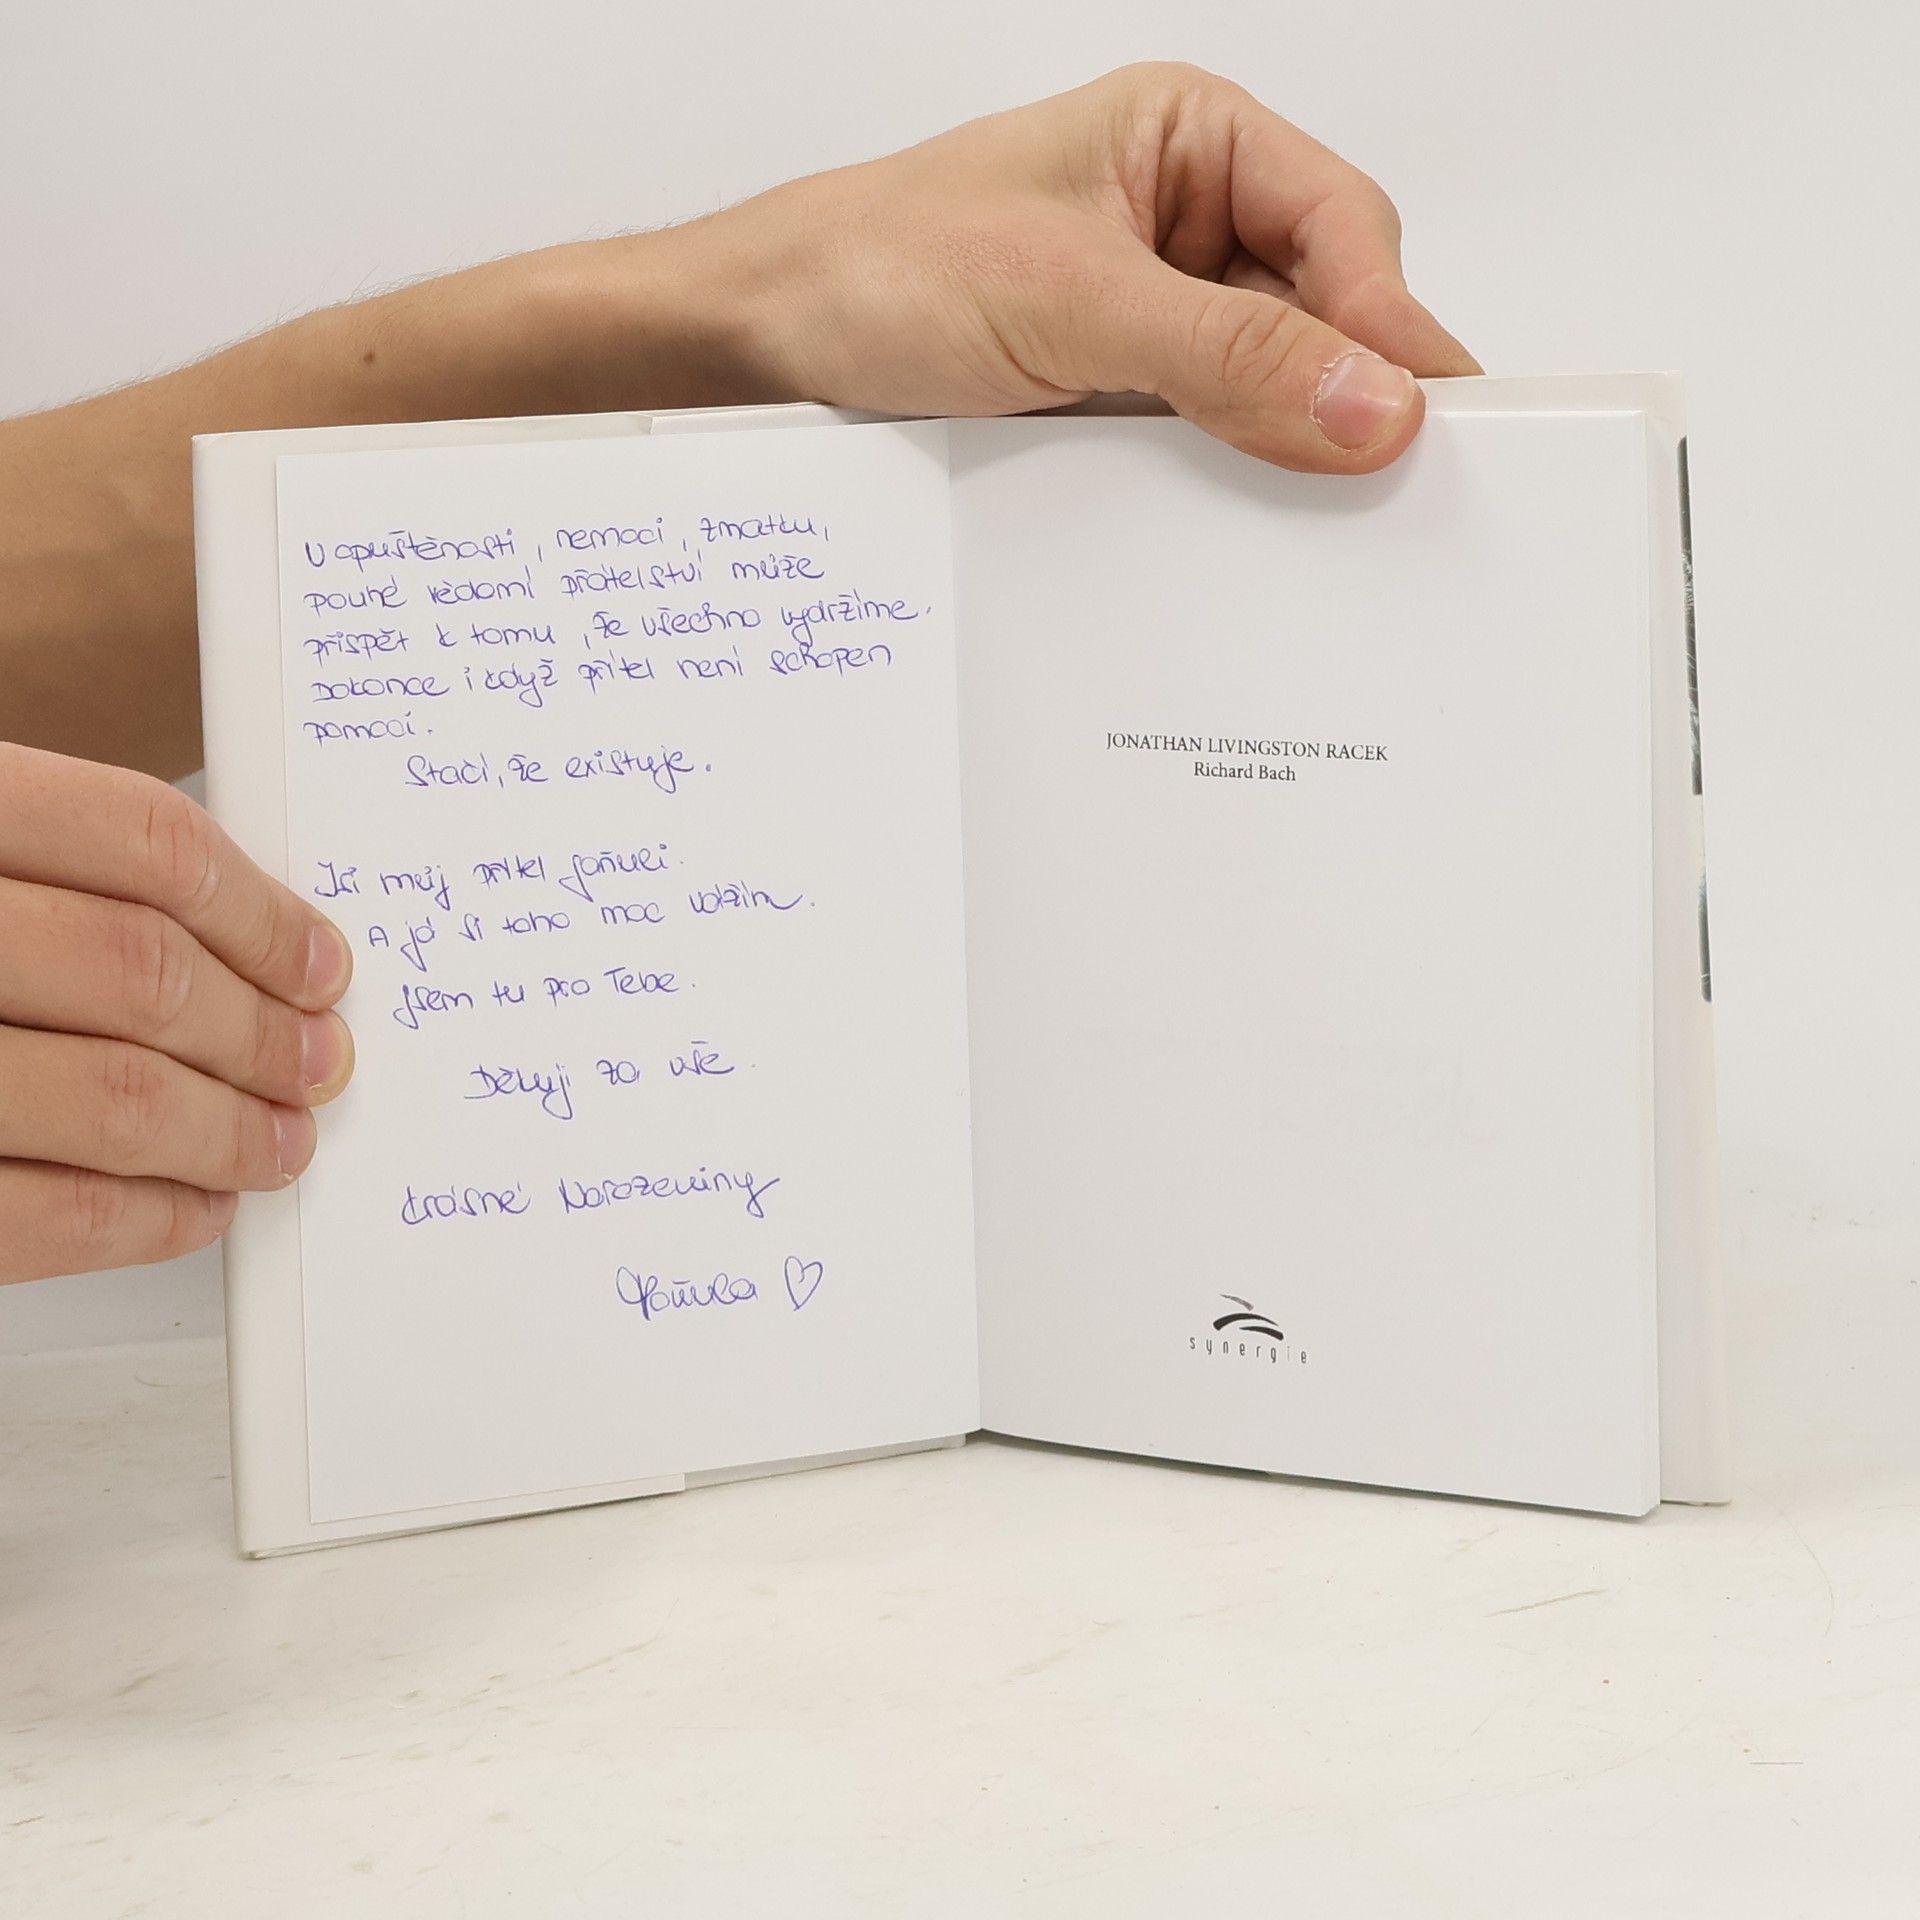 V opuštěnosti, nemoci, zmatku,
pouhé vědomí přátelství může
přispět k tomu, že všechno vydržíme.
Dokonce i když přítel není schopen
pomoci.
Stačí, že existuje.
Jsi můj přítel
A já si toho moc vážím.
Jsem tu pro Tebe.
Děkuji za vše.
Krásné Narozeniny
JONATHAN LIVINGSTON RACEK
Richard Bach
synergie